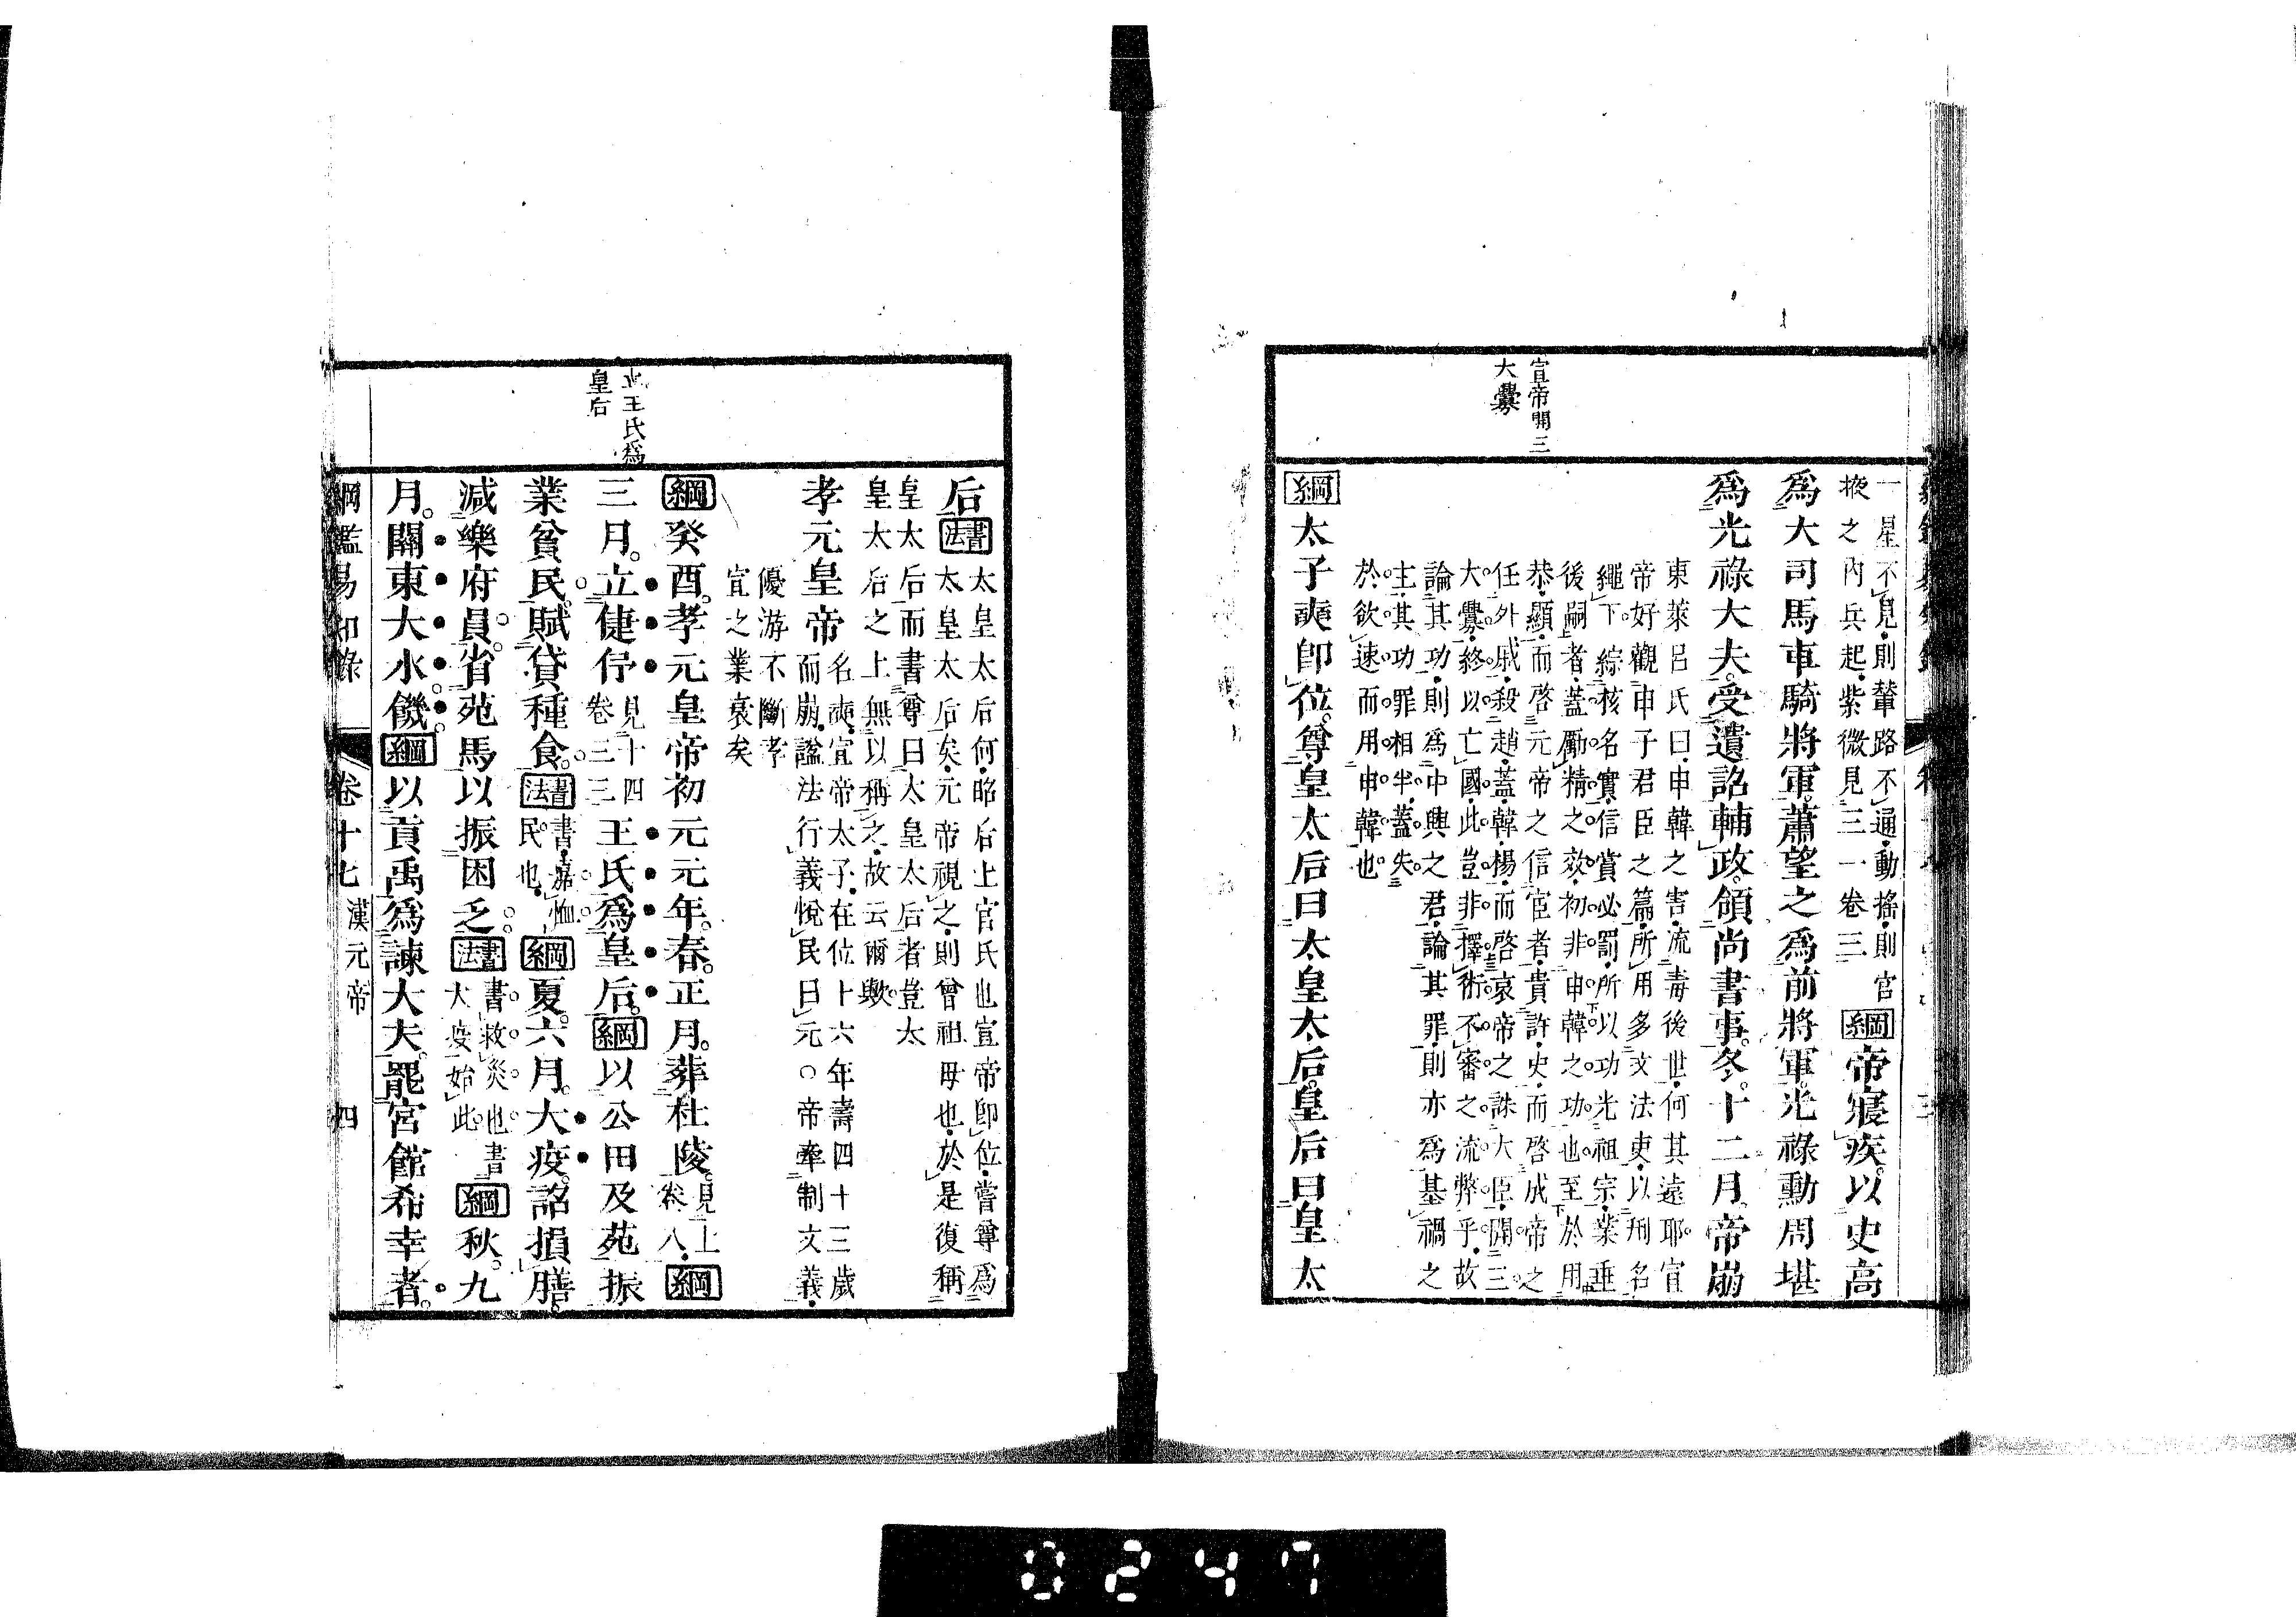 宣帝開三
大釁
一星不見則輦路不通動搖則官
掖之內兵起紫微見三一卷三
綱帝寢疾以史高
爲大司馬車騎將軍蕭望之爲前將軍光祿勳周堪
爲光祿大夫受遺詔輔政領尚書事冬十二月帝崩
東萊呂氏曰申韓之害流毒後世何其遠耶宣
帝好觀申子君臣之篇所用多文法吏以刑名
繩下綜核名實信賞必罰所以功光祖宗業垂
後嗣者蓋勵精之效初非申韓之功也至於用
恭顯而啓元帝之信宦者貴許史而啓成帝之
任外戚殺趙蓋韓楊而啓哀帝之誅大臣開三
大釁終以亡國此豈非擇術不審之流弊乎故
論其功則爲中興之君論其罪則亦爲基禍之
主其功罪相半蓋失
於欲速而用申韓也
綱太子奭卽位尊皇太后曰太皇太后皇后曰皇太
立王氏爲
皇后
后書法
太皇太后何昭后上官氏也宣帝卽位嘗尊爲
太皇太后矣元帝視之則曾祖母也於是復稱
皇太后而書尊曰太皇太后者豈太
皇太后之上無以稱之故云爾歟
孝元皇帝
名奭宣帝太子在位十六年壽四十三歲
而崩諡法行義悅民曰元○帝牽制文義
優游不斷孝
宣之業衰矣
綱癸酉孝元皇帝初元元年春正月葬杜陵見上卷八綱
三月立倢伃見十四卷三三王氏爲皇后綱以公田及苑振
業貧民賦貸種食書法書嘉恤民也綱夏六月大疫詔損膳
減樂府員省苑馬以振困乏書法書救災也書大疫始此綱秋九
月關東大水饑綱以貢禹爲諫大夫罷宮館希幸者
綱鑑易知錄 卷十七 漢元帝 四
0247